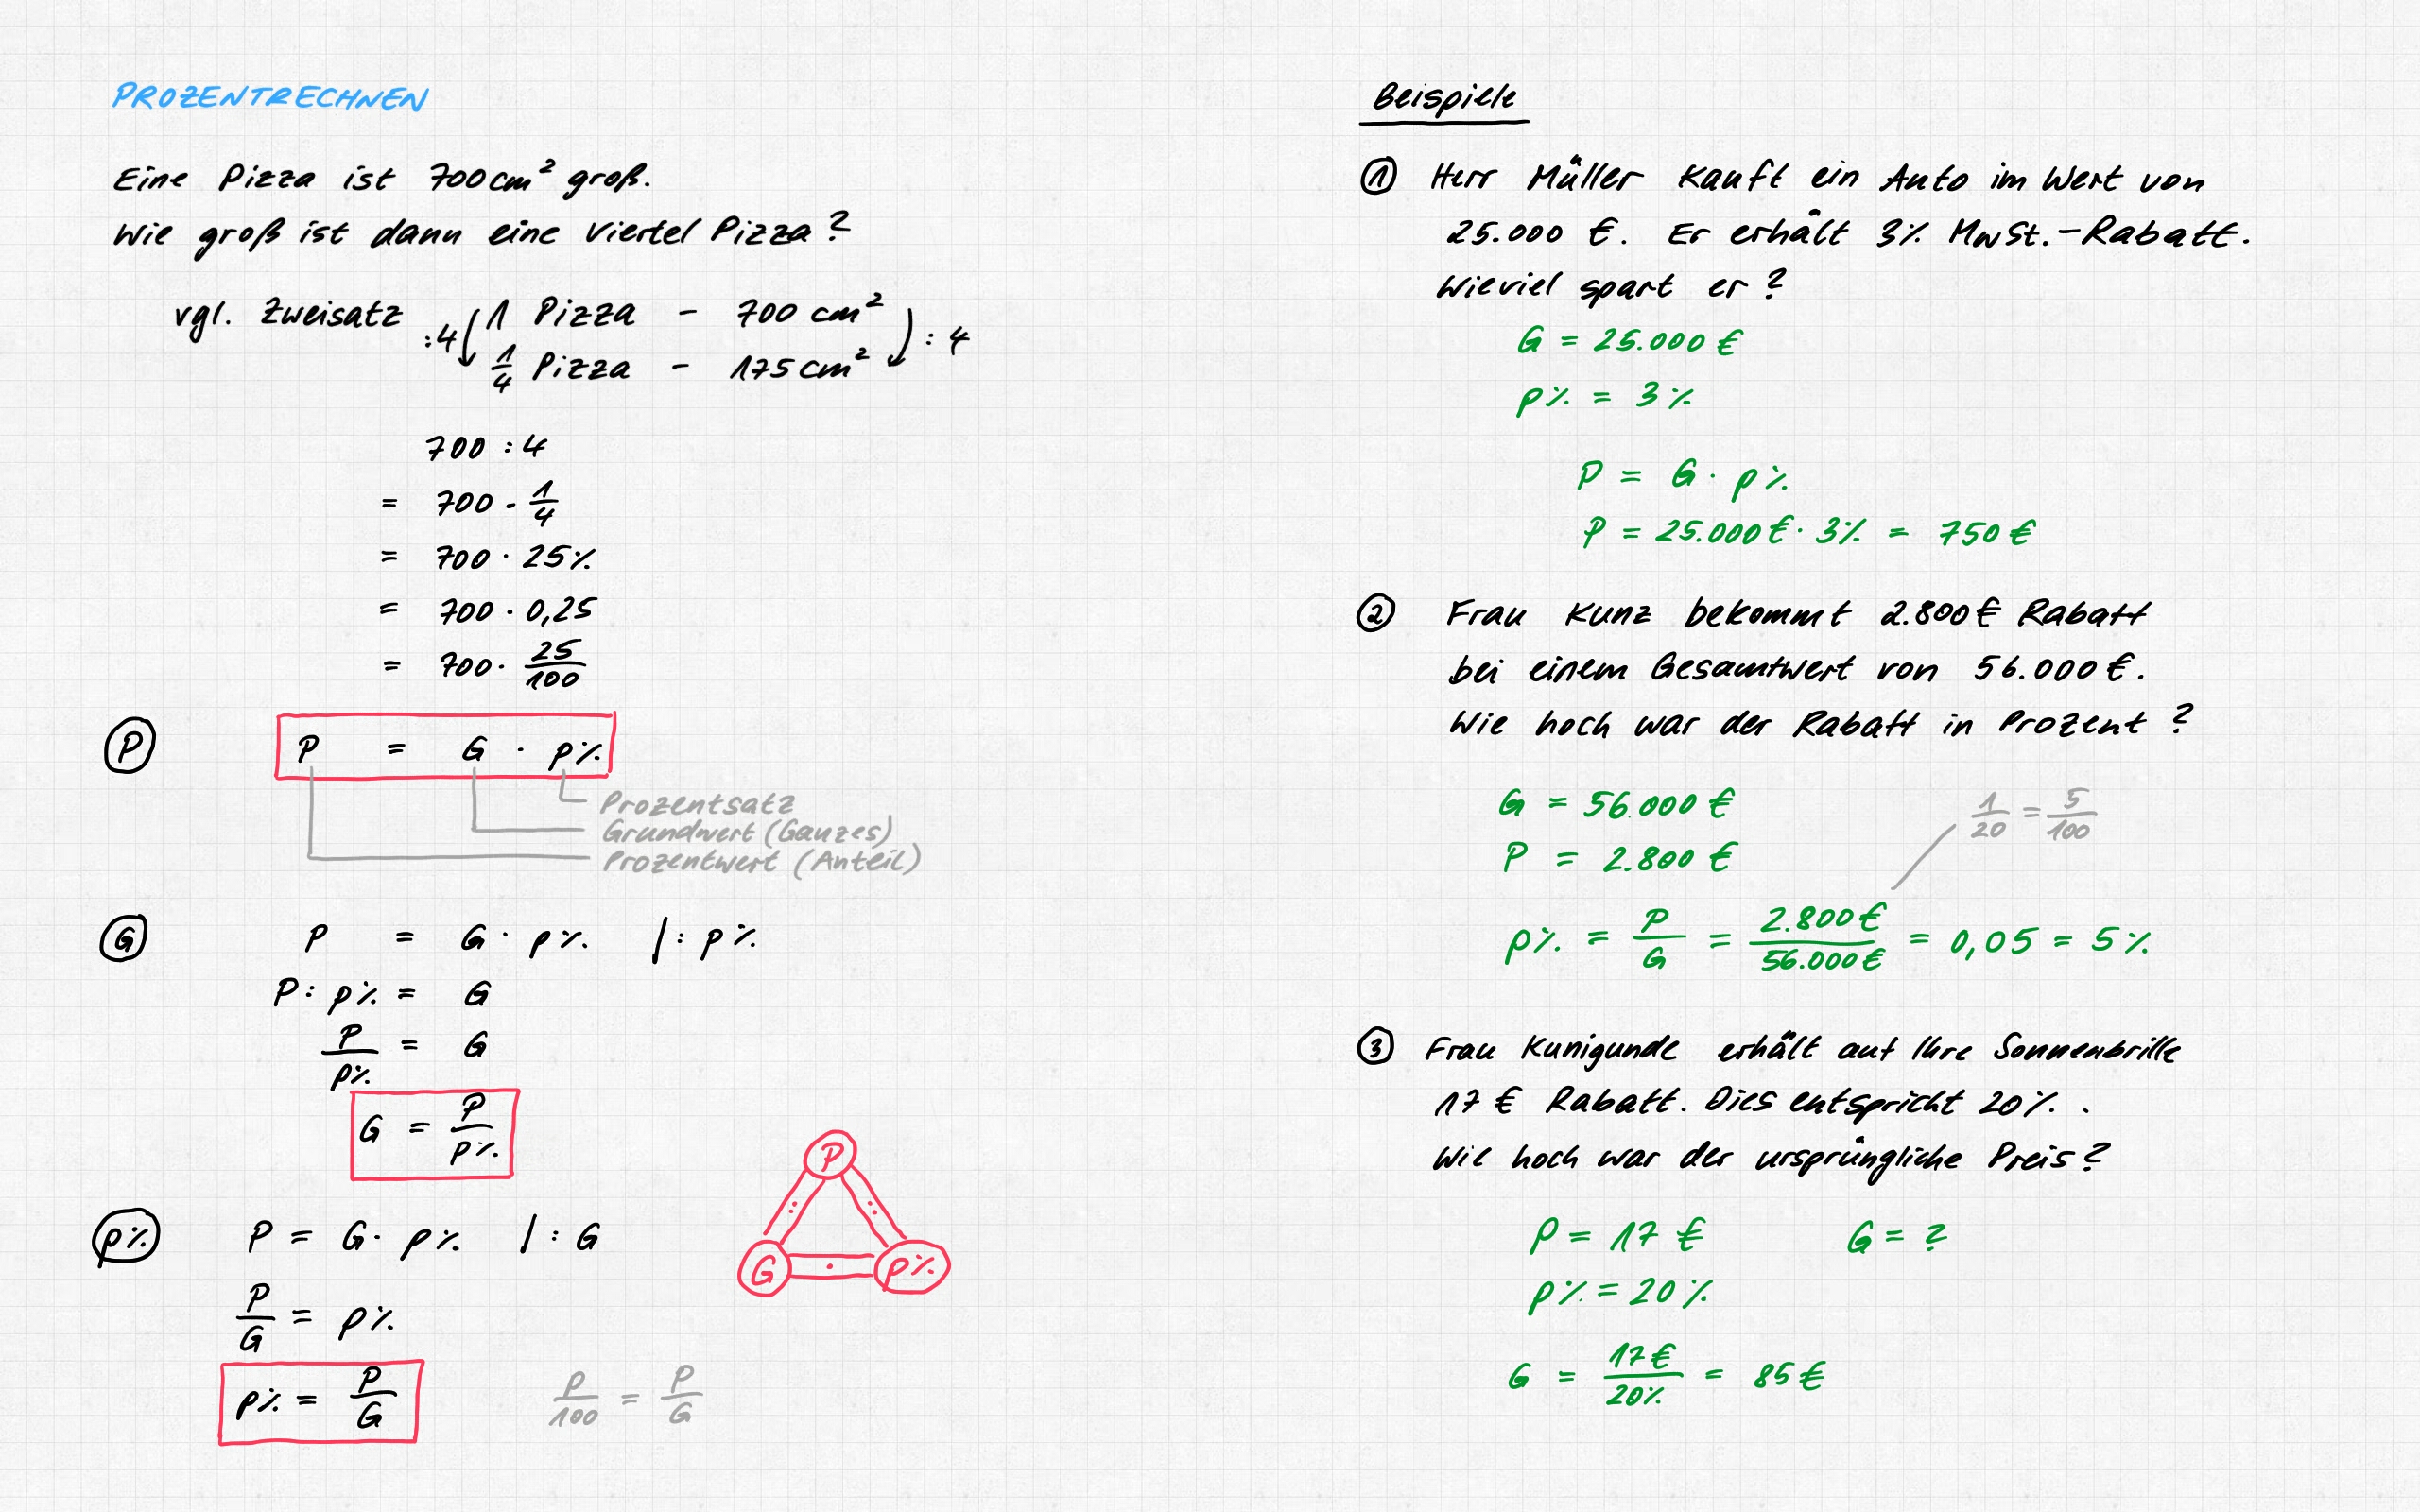 PROZENTRECHNEN
Eine Pizza ist 700 cm² groß.
Wie groß ist dann eine Viertel Pizza?
vgl. Zweisatz :4 1 Pizza - 700 cm² :4
1/4 Pizza - 175 cm²
700 : 4
= 700 · 1/4
= 700 · 25%
= 700 · 0,25
= 700 · 25/100
P P = G · p%
Prozentsatz
Grundwert (Ganzes)
Prozentwert (Anteil)
G P = G · p% | : p%
P : p% = G
P/p% = G
G = P/p%
P
: :
G · p%
p% P = G · p% | : G
P/G = p%
p% = P/G p/100 = P/G
Beispiele
1 Herr Müller kauft ein Auto im Wert von
25.000 €. Er erhält 3% MwSt.-Rabatt.
Wieviel spart er?
G = 25.000 €
p% = 3%
P = G · p%
P = 25.000 € · 3% = 750 €
2 Frau Kunz bekommt 2.800 € Rabatt
bei einem Gesamtwert von 56.000 €.
Wie hoch war der Rabatt in Prozent?
G = 56.000 €
P = 2.800 €
1/20 = 5/100
p% = P/G = 2.800 €/56.000 € = 0,05 = 5%
3 Frau Kunigunde erhält auf Ihre Sonnenbrille
17 € Rabatt. Dies entspricht 20%.
Wie hoch war der ursprüngliche Preis?
P = 17 € G = ?
p% = 20%
G = 17 €/20% = 85 €